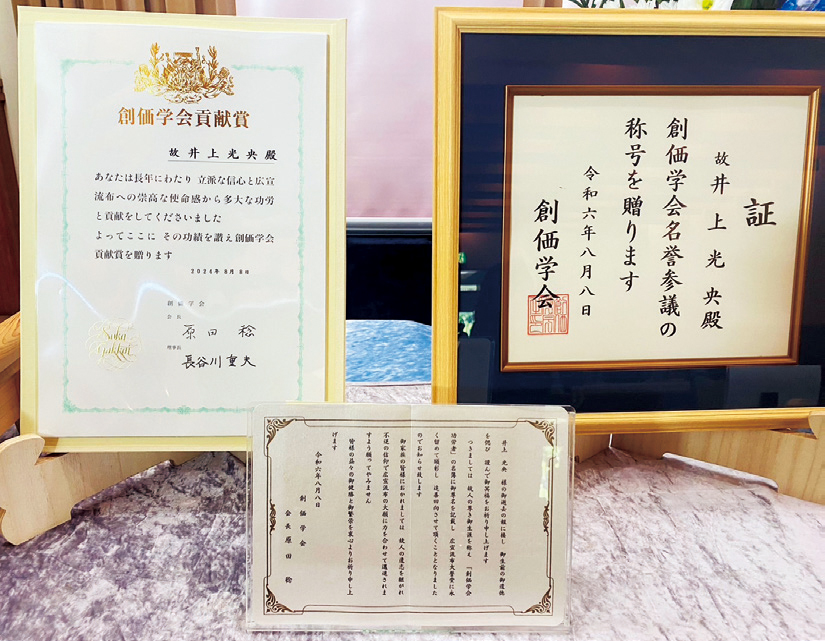 創価学会貢献賞
故 井上光央殿
あなたは長年にわたり 立派な信心と広宣
流布への崇高な使命感から多大な功労
と貢献をしてくださいました
よってここに その功績を讃え創価学会
貢献賞を贈ります
2024年8月8日
創価学会
会長
原田 稔
理事長
長谷川重夫
Soka Gakkai
証
故 井上光央殿
創価学会名誉参議の
称号を贈ります
令和六年八月八日
創価学会
井上 光央 様の御逝去の報に接し 御生前の御遺徳
を偲び 謹んで御冥福をお祈り申し上げます
つきましては 故人の尊き御生涯を称え 「創価学会
功労者」の名簿に御尊名を記載し 広宣流布大誓堂に永
く留めて顕彰し 追善回向させて頂くこととなりました
のでお知らせ致します
御家族の皆様におかれましては 故人の遺志を継がれ
不退の信仰で広宣流布の大願に力を合わせて邁進されま
すよう願ってやみません
皆様の益々の御健勝と御繁栄を衷心よりお祈り申し上
げます
令和六年八月八日
創価学会
会長 原田 稔